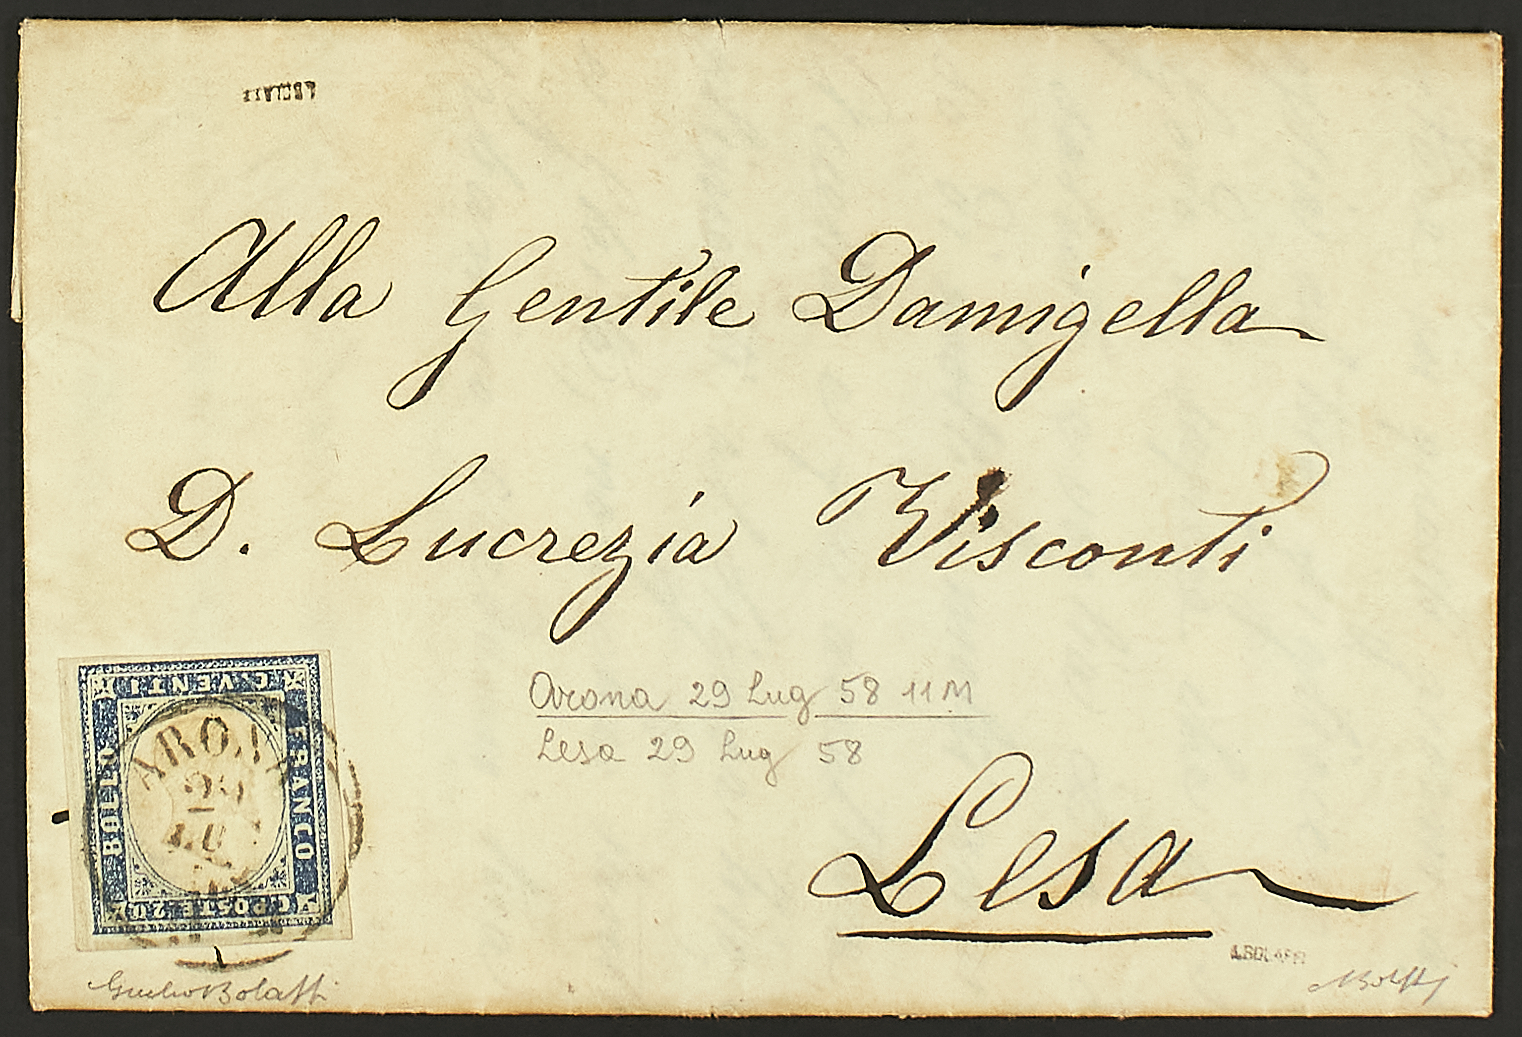 Alla Gentile Damigella
D. Lucrezia Visconti
Arona 29 Lug 58 11M
Lesa 29 Lug 58
Lesa
C. VENTI
FRANCO
BOLLO
C. POSTE 20
ARONA
29
LUG
A.BOLAFFI
Giulio Bolaffi